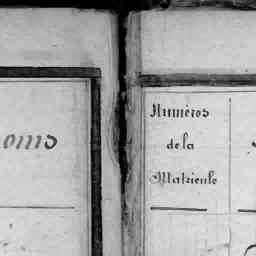 oms
Numéros
de la
Matricule